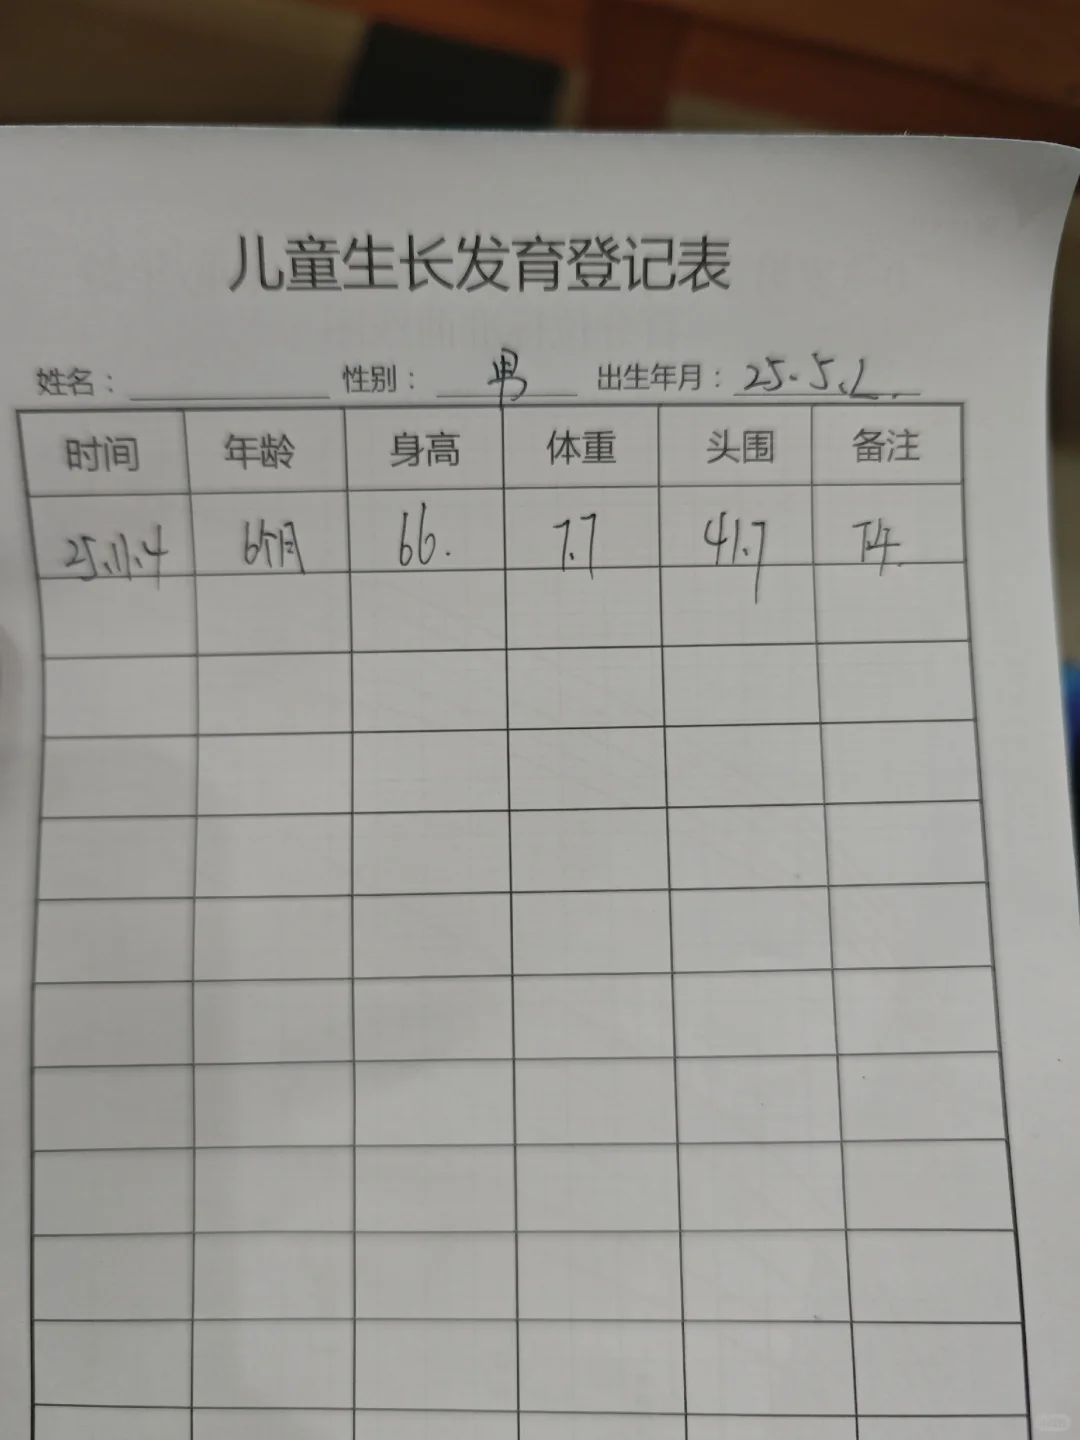 儿童生长发育登记表
姓名： 性别： 男 出生年月： 25.5.2.
时间 年龄 身高 体重 头围 备注
25.11.4 6个月 66. 7.7 41.7